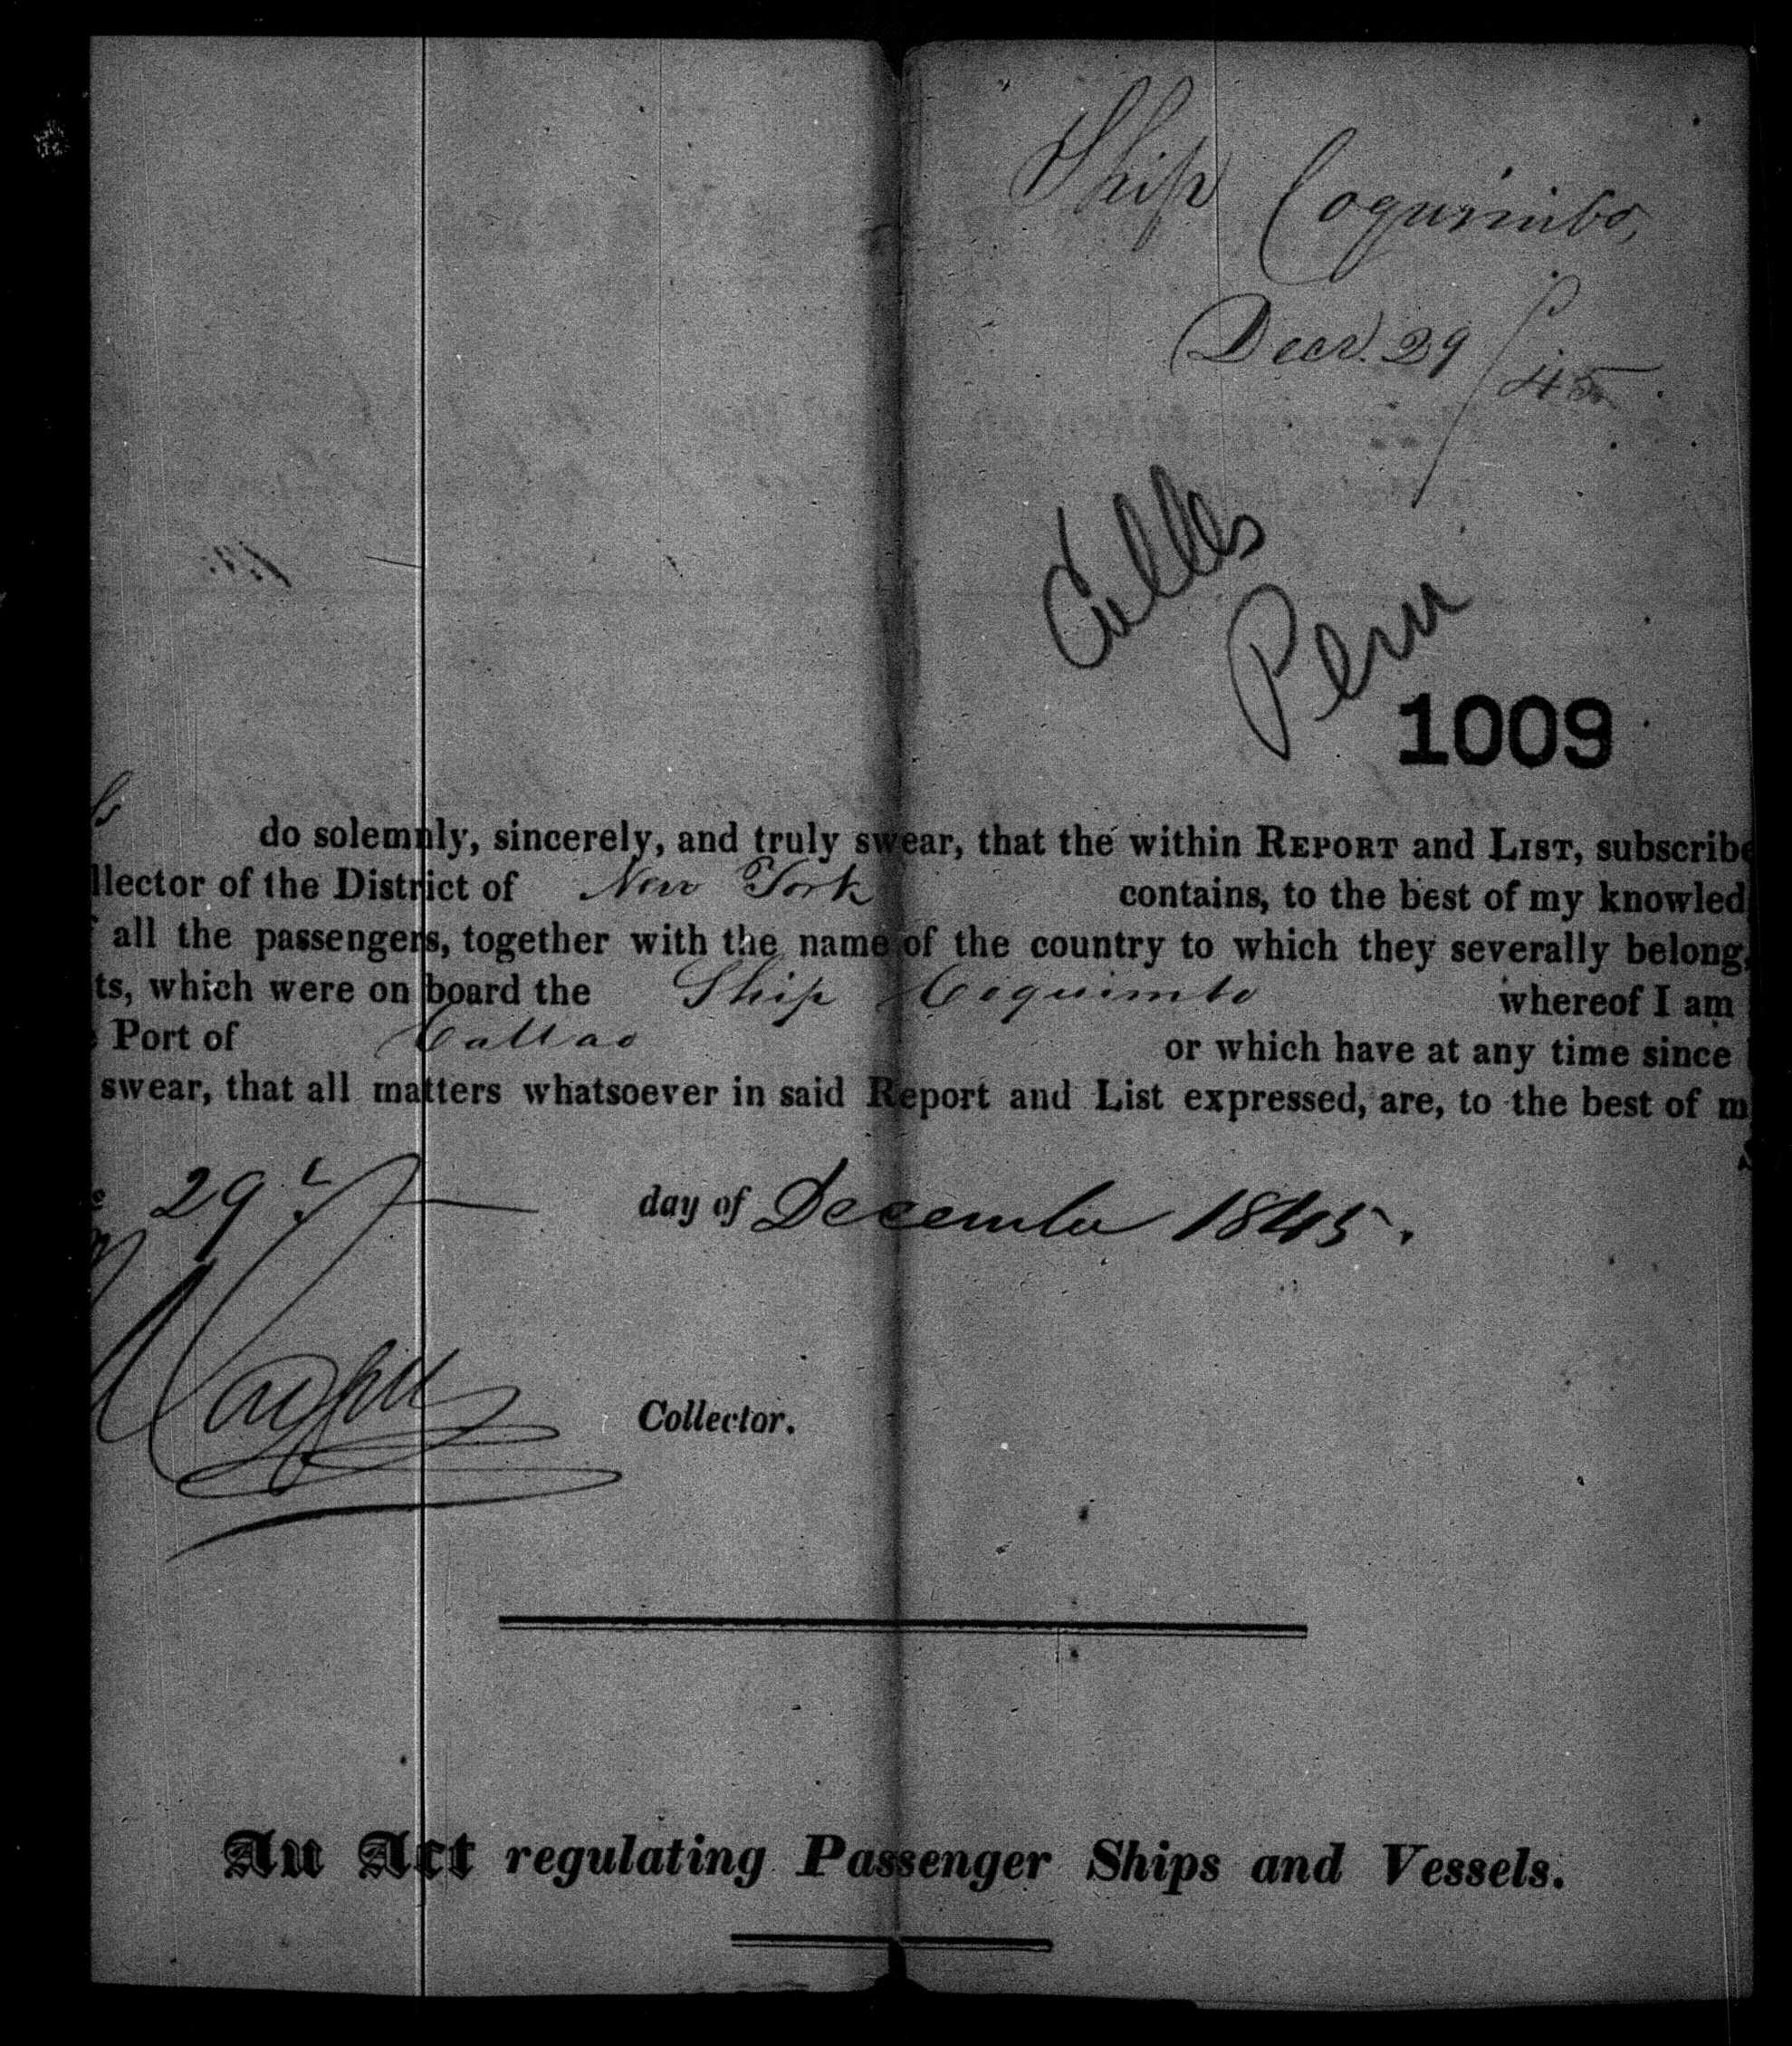 Ship Coquimbo,
Decr. 29 / 45
Peru
1009
do solemnly, sincerely, and truly swear, that the within REPORT and LIST, subscribe
llector of the District of New York contains, to the best of my knowled
all the passengers, together with the name of the country to which they severally belong,
ts, which were on board the Ship Coquimbo whereof I am
Port of Callao or which have at any time since
swear, that all matters whatsoever in said Report and List expressed, are, to the best of m
29th day of December 1845.
Collector.
An Act regulating Passenger Ships and Vessels.